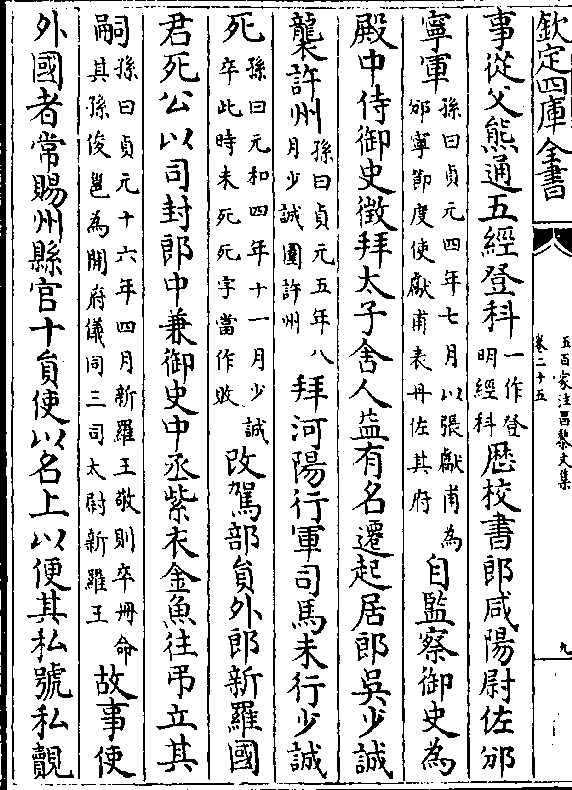 欽定四庫全書
五百家注昌黎文集
卷二十五
九
事從父熊通五經登科一作登明經科歴校書郎咸陽尉佐邠
寧軍孫曰貞元四年七月以張獻甫為邠寧節度使獻甫表丹佐其府自監察御史為
殿中侍御史徴拜太子舍人益有名遷起居郎吳少誠
襲許州孫曰貞元五年八月少誠圍許州拜河陽行軍司馬未行少誠
死孫曰元和四年十一月少誠卒此時未死死字當作敗改駕部貟外郎新羅國
君死公以司封郎中兼御史中丞紫衣金魚往弔立其
嗣孫曰貞元十六年四月新羅王敬則卒冊命其孫俊邕為開府儀同三司太尉新羅王故事使
外國者常賜州縣官十貟使以名上以便其私號私覿